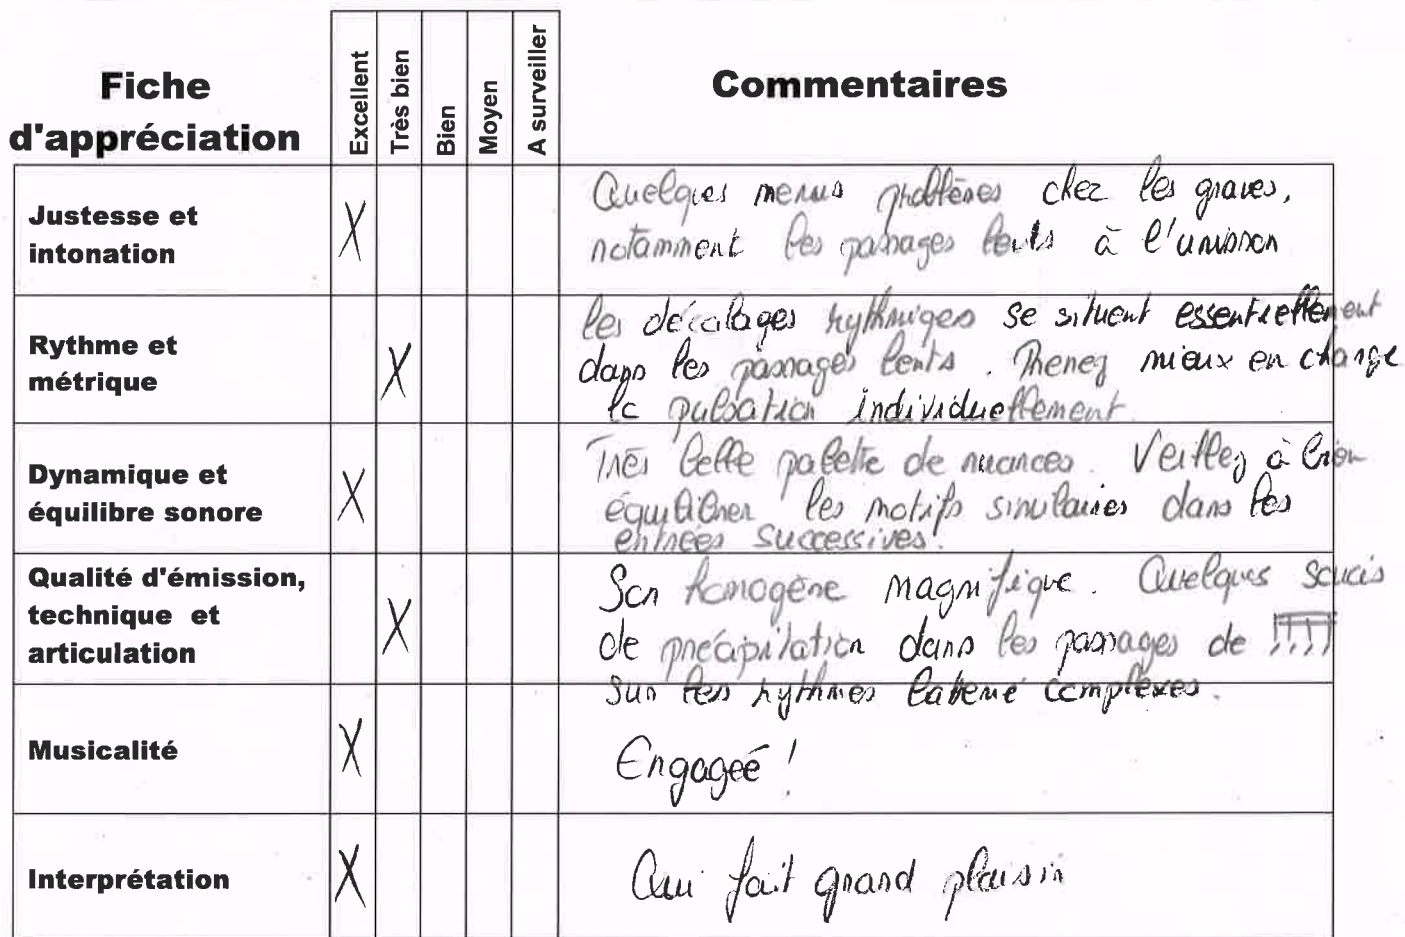 Fiche
d'appréciation
Excellent
Très bien
Bien
Moyen
A surveiller
Commentaires
Justesse et
intonation
X
Quelques menus problèmes chez les graves,
notamment les passages lents à l'unisson
Rythme et
métrique
X
les décalages rythmiqes se situent essentiellement
dans les passages lents. Prenez mieux en charge
la pulsation individuellement.
Dynamique et
équilibre sonore
X
Très belle palette de nuances. Veillez à bien
équilibrer les motifs similaires dans les
entrées successives.
Qualité d'émission,
technique et
articulation
X
Son homogène magnifique. Quelques soucis
de précipitation dans les passages de
sur les rythmes complexes.
Musicalité
X
Engagée !
Interprétation
X
Qui fait grand plaisir